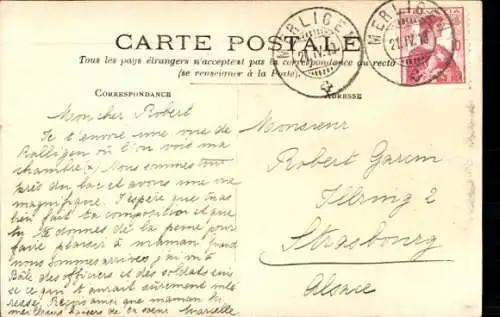 CARTE POSTALE
Tous les pays étrangers n'acceptent pas la correspondance au recto
(se renseigner à la Poste).
CORRESPONDANCE
ADRESSE
MERLIGEN
21.IV.1
MERLIGEN
21.IV.1
HELVETIA
10
Mon cher Robert
Je t'envoie une vue de
Ralligen où l'on voit ma
chambre (x) Nous sommes tout
près du lac et avons une vue
magnifique. J'espère que tu as
bien fait ta composition et que
tu te donnes de la peine pour
faire plaisir à maman. Quand
nous sommes arrivés, j'ai vu à
Bâle des officiers et des soldats suis
se ce qui t'aurait sûrement inté
ressé. Reçois ainsi que maman les
meilleurs baisers de ta sœur Marcelle
Monsieur
Robert Garcin
Illring 2
Strasbourg
Alsace